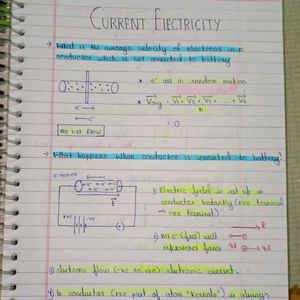 CURRENT ElECTRICITY
→ What is the average velocity of electrons in a
conductor which is not connected to battery
* e⁻ are in random motion
* V⃗avg = V⃗1 + V⃗2 + V⃗3 + ... + V⃗n
n
= 0
← e⁻
e⁻ →
No net flow
→ What happens when conductor is connected to battery?
1) Electric field is set up in
conductor instantly (+ve terminal
→ -ve terminal)
+ve -ve
2) All e⁻ (free) will
experience force
3) electrons flow (-ve to +ve) electronic current.
4) In conductor (+ve part of atom "Kernels") is always